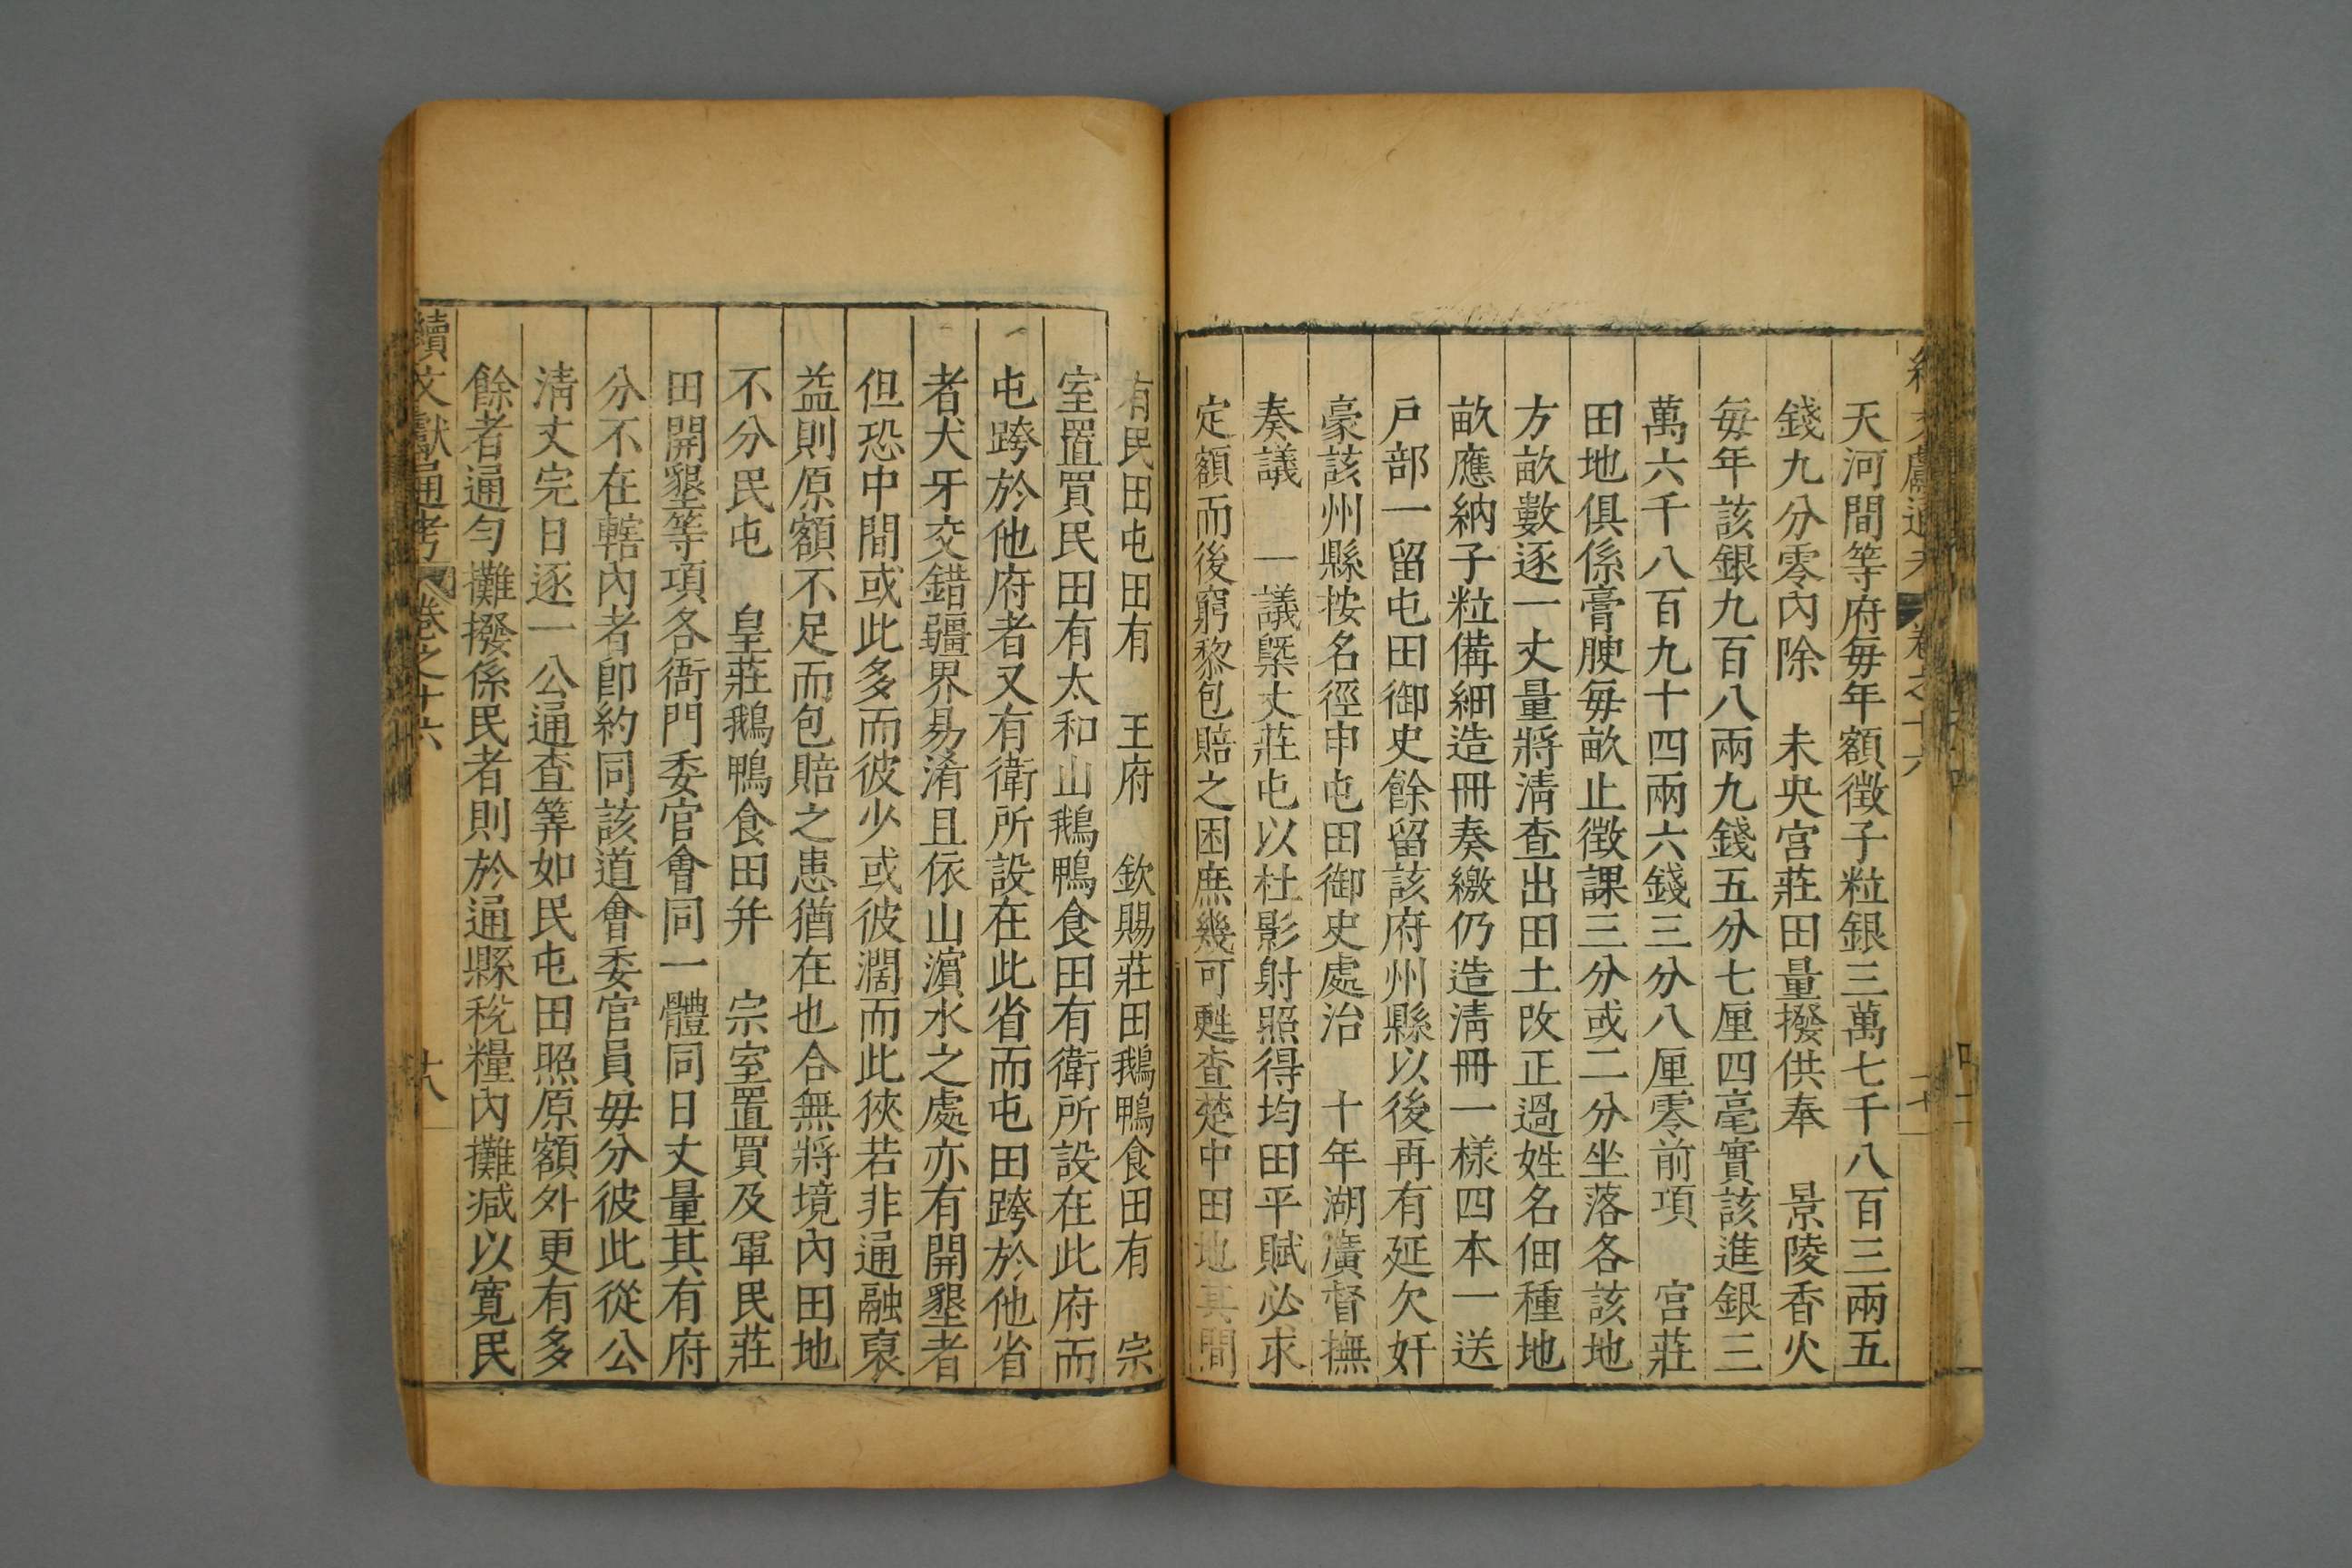 天河間等府毎年額徵子粒銀三萬七千八百三兩五
錢九分零內除 未央宮莊田量撥供奉 景陵香火
毎年該銀九百八兩九錢五分七厘四毫實該進銀三
萬六千八百九十四兩六錢三分八厘零前項 宮莊
田地俱係膏腴毎畝止徵課三分或二分坐落各該地
方畝數逐一丈量將淸查出田土改正過姓名佃種地
畝應納子粒備細造冊奏繳仍造淸冊一樣四本一送
戸部一留屯田御史餘留該府州縣以後再有延欠奸
豪該州縣按名徑申屯田御史處治 十年湖廣督撫
奏議 一議槩丈莊屯以杜影射照得均田平賦必求
定額而後窮黎包賠之困庶幾可甦查楚中田地其間
有民田屯田有 王府 欽賜莊田鵝鴨食田有 宗
室置買民田有太和山鵝鴨食田有衛所設在此府而
屯跨於他府者又有衛所設在此省而屯田跨於他省
者犬牙交錯疆界易淆且依山濵水之處亦有開墾者
但恐中間或此多而彼少或彼濶而此狹若非通融裒
益則原額不足而包賠之患猶在也合無將境內田地
不分民屯 皇莊鵝鴨食田幷 宗室置買及軍民莊
田開墾等項各衙門委官會同一體同日丈量其有府
分不在轄內者卽約同該道會委官員毋分彼此從公
淸丈完日逐一公通查筭如民屯田照原額外更有多
餘者通勻攤撥係民者則於通縣稅糧內攤减以寬民
續文獻通考 卷之十六 十八